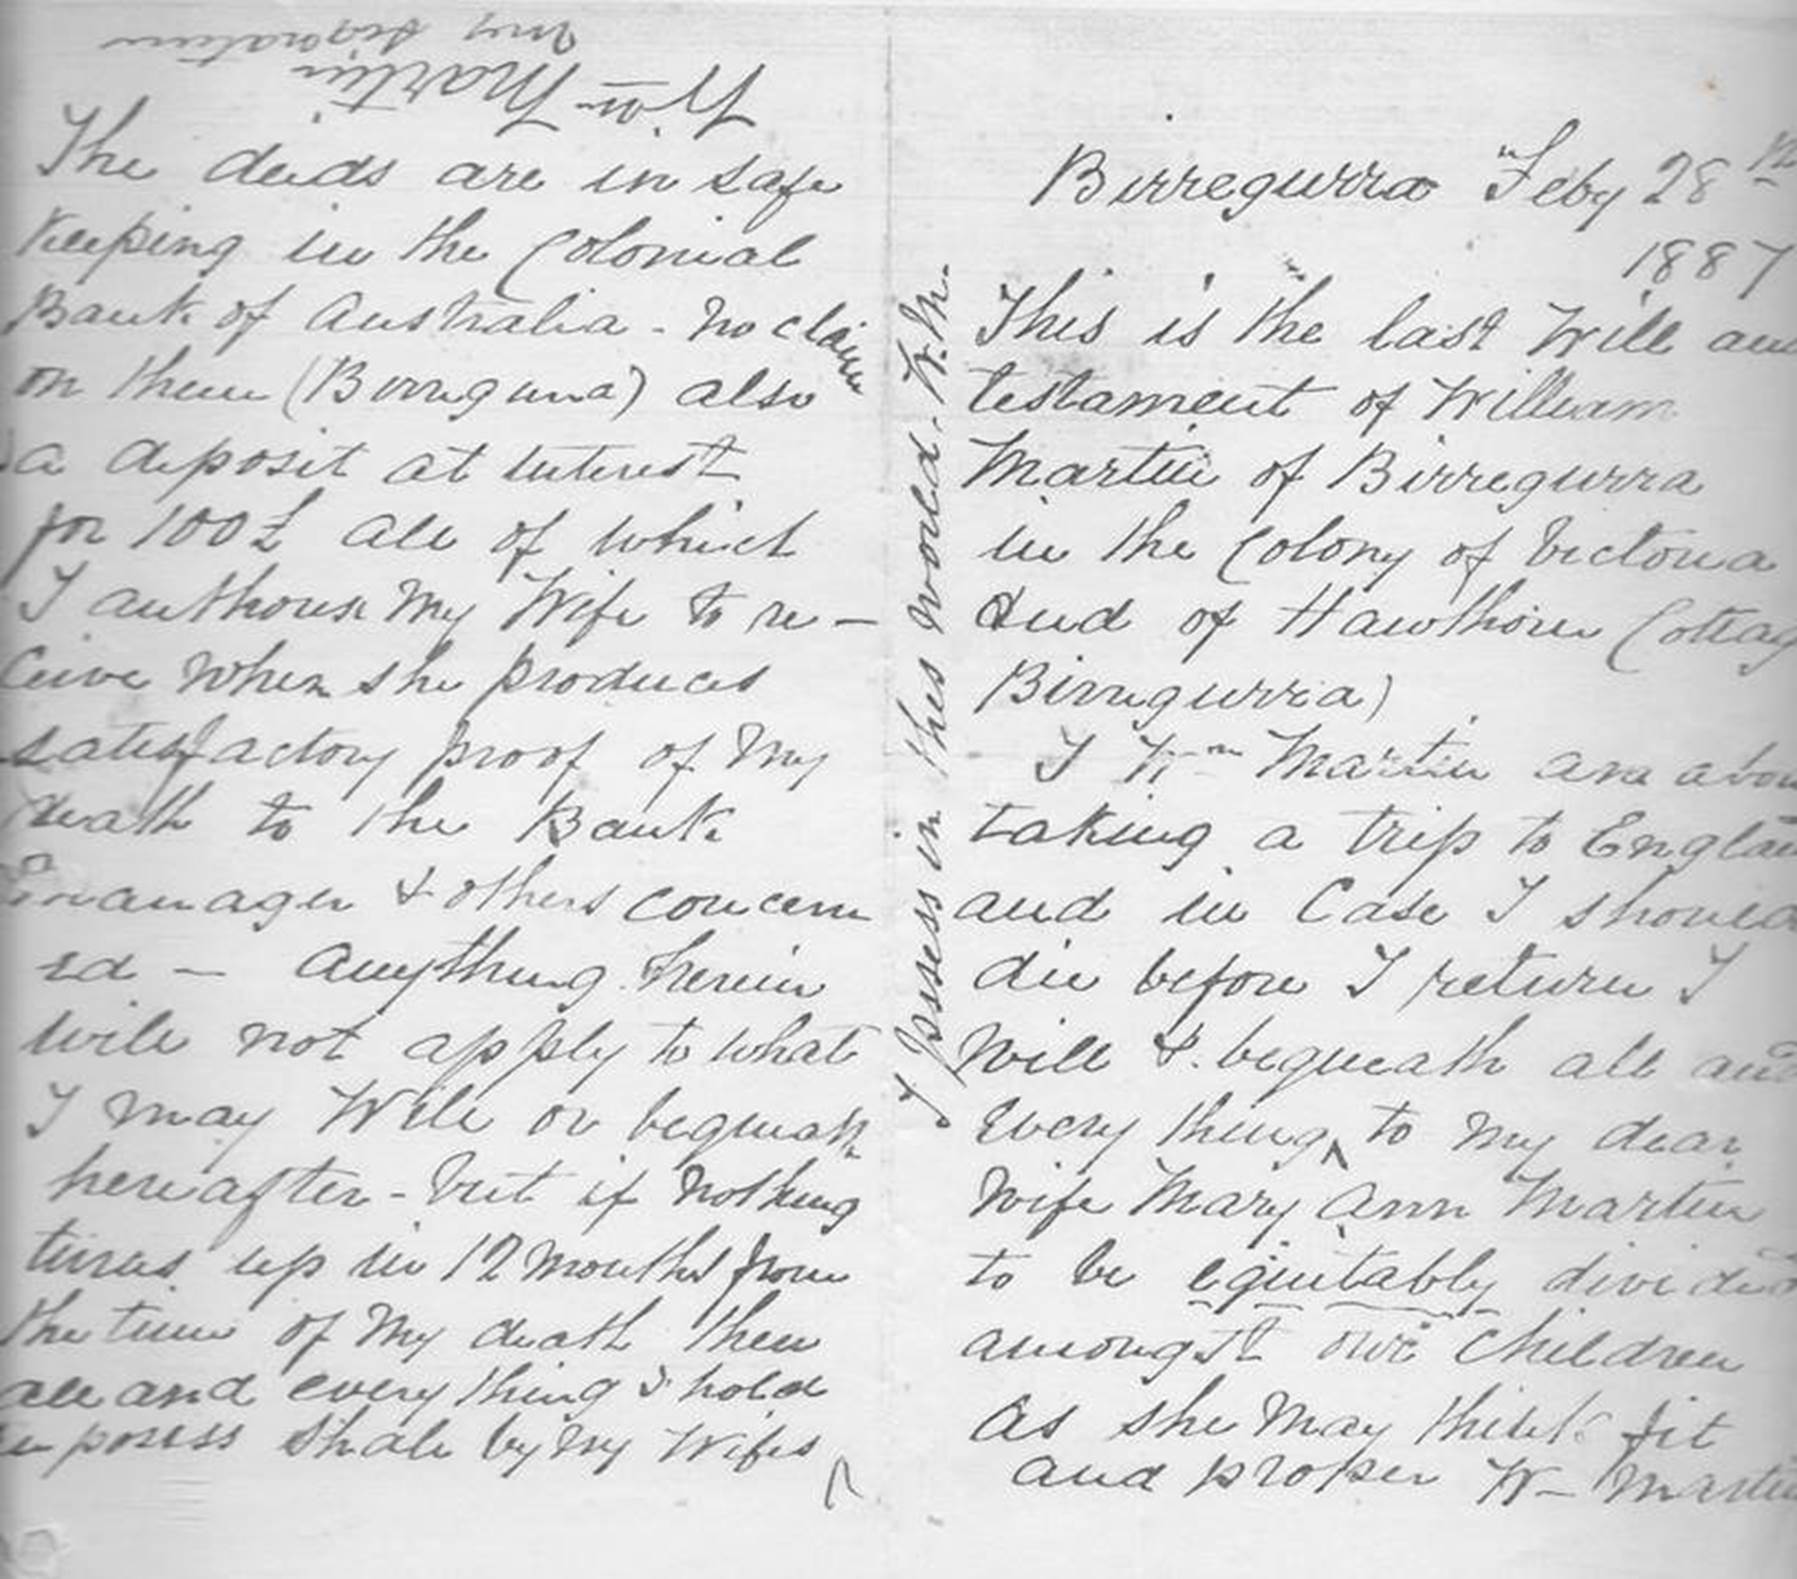 Birregurra Feby 28th
1887
This is the last Will and
testament of William
Martin of Birregurra
in the Colony of Victoria
And of Hawthorn Cottag
Birregurra)
I Wm Martin am abou
taking a trip to Englan
and in Case I should
die before I return I
Will & bequeath all and
every thing ^ to my dear
Wife Mary Ann Martin
to be equitably divided
amongst our Children
as she may think fit
and proper W- Martin
I Possess in this World. W.M.
The deeds are in safe
keeping in the Colonial
Bank of Australia - no claim
on them (Birregurra) also
a deposit at interest
for 100£ all of which
I authorise my Wife to re-
ceive when she produces
satisfactory proof of my
death to the Bank
manager & others concern
ed - Anything herein
will not apply to what
I may Will or bequeath
hereafter - but if nothing
turns up in 12 months from
the time of my death then
all and every thing I hold
posess shall by my Wifes ^
Wm Martin
my signature